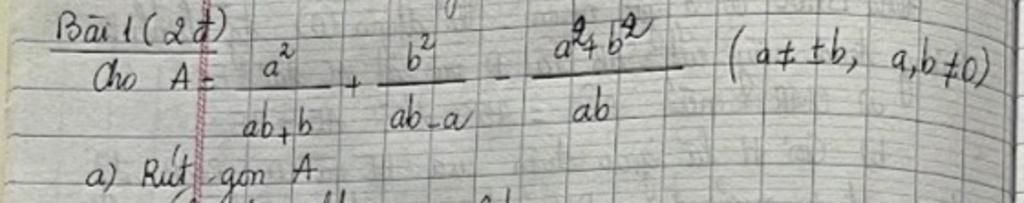 Bài 1 (2đ)
Cho A = a²/(ab+b) + b²/(ab-a) - (a²+b²)/ab (a ≠ ±b, a,b ≠ 0)
a) Rút gọn A